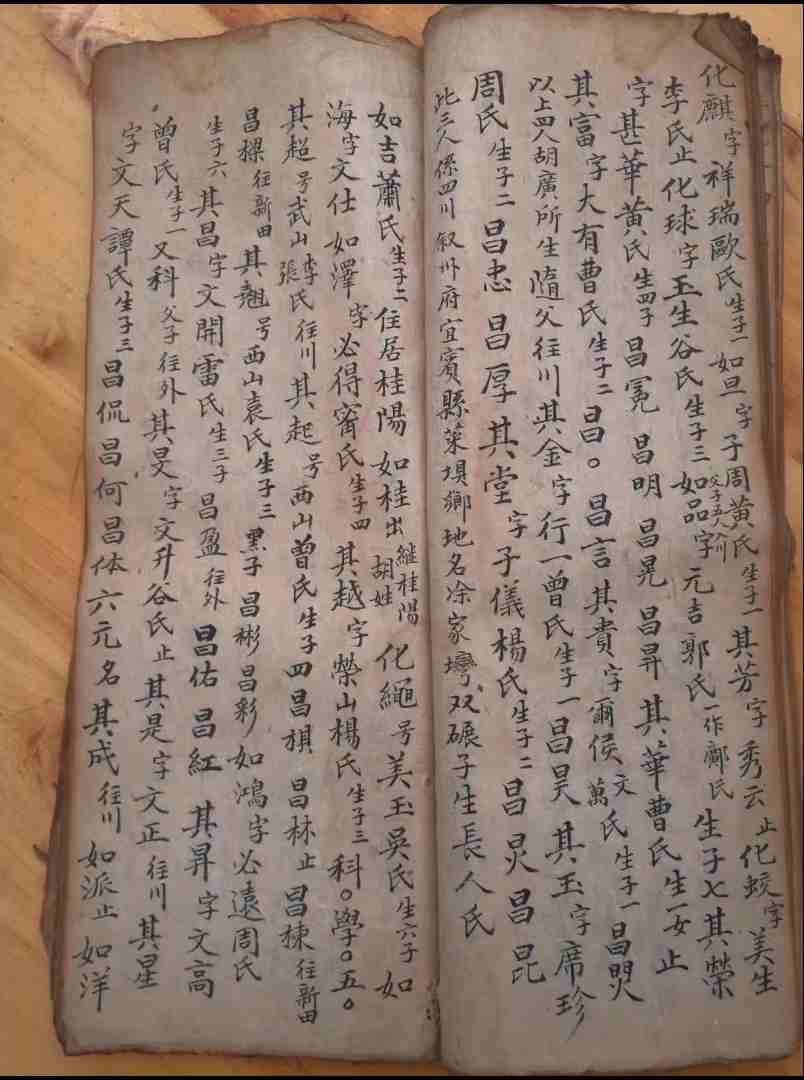 化麒字祥瑞歐氏生子一如旦字子周黃氏生子一其芳字秀云止化蛟字美生
李氏止化球字玉生谷氏生子三如品字父子五人入川元吉郭氏一作鄺氏生子七其榮
字甚華黃氏生四子昌冕昌明昌晃昌昇其華曹氏生一女止
其富字大有曹氏生子二昌。昌言其貴字爾侯文萬氏生子一昌煚
以上四人胡廣所生隨父往川其金字行一曾氏生子一昌昊其玉字席珍
周氏生子二昌忠昌厚其堂字子儀楊氏生子二昌炅昌昆
此三人係四川叙州府宜賓縣菜垻鄉地名涂家灣双碾子生長人氏
如吉蕭氏生子二住居桂陽如桂出繼桂陽胡姓化繩号美玉吳氏生六子如
海字文仕如澤字必得甯氏生子四其越字榮山楊氏生子三科。學。五。
其超号武山李張氏往川其起号西山曾氏生子四昌旗昌林止昌棟往新田
昌樑往新田其翹号西山袁氏生子三黑子昌彬昌彩如鴻字必遠周氏
生子六其昌字文開雷氏生三子昌盈往外昌佑昌紅其昇字文高
曾氏生子一又科父子往外其旻字文升谷氏止其是字文正往川其星
字文天譚氏生子三昌侃昌何昌体六元名其成往川如派止如洋